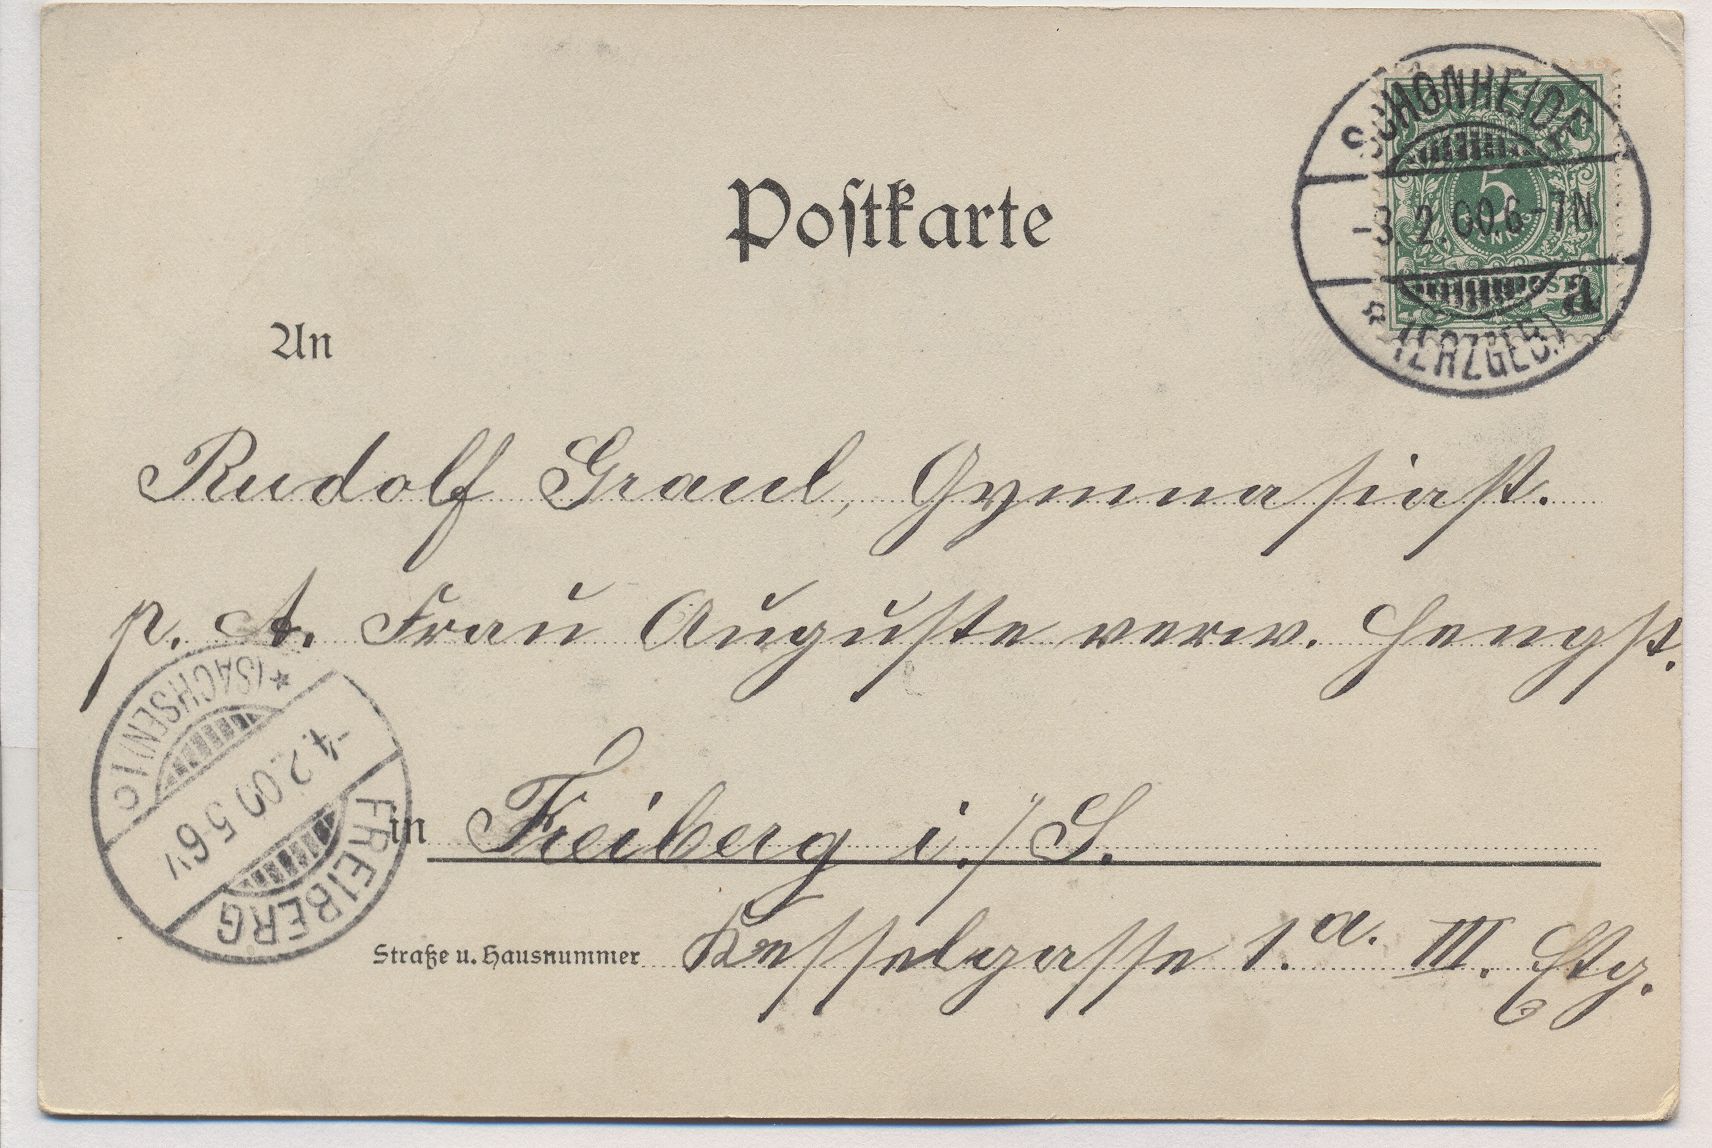 Postkarte
SCHÖNHEIDE
-3.2.00.6-7N.
a
* (ERZGEB.)
5
An
Rudolf Graul, Gymnasiast.
p. A. Frau Auguste verw. Hengst.
in Freiberg i./S.
Straße u. Hausnummer Kesselgasse 1.a. III. Etg.
FREIBERG
-4.2.00 5-6V
* (SACHSEN) 1 c